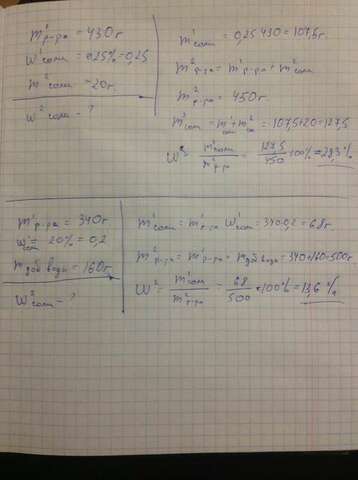 m¹р-ра = 430г
ω¹соли = 0,25% = 0,25
m²соли = 20г.
ω²соли - ?
m¹соли = 0,25·430 = 107,5г.
m²р-ра = m¹р-ра + m²соли
m²р-ра = 450г.
m³соли = m¹соли + m²соли = 107,5+20 = 127,5
ω² = m³соли / m²р-ра = 127,5 / 450 · 100% = 28,3%
m¹р-ра = 340г
ω¹соли = 20% = 0,2
m доб воды = 160г
ω²соли - ?
m¹соли = m¹р-ра · ω¹соли = 340·0,2 = 68г.
m²р-ра = m¹р-ра + m доб воды = 340+160 = 500г
ω² = m¹соли / m²р-ра = 68 / 500 · 100% = 13,6%